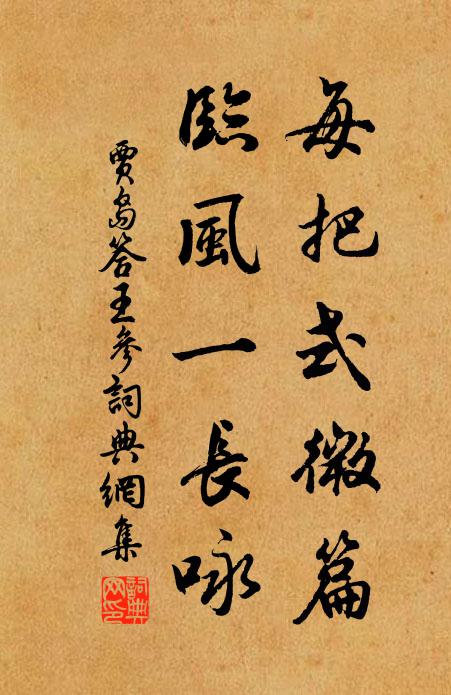 每把式微篇
臨風一長咏
賈島答王參詞典網集
詞典網印